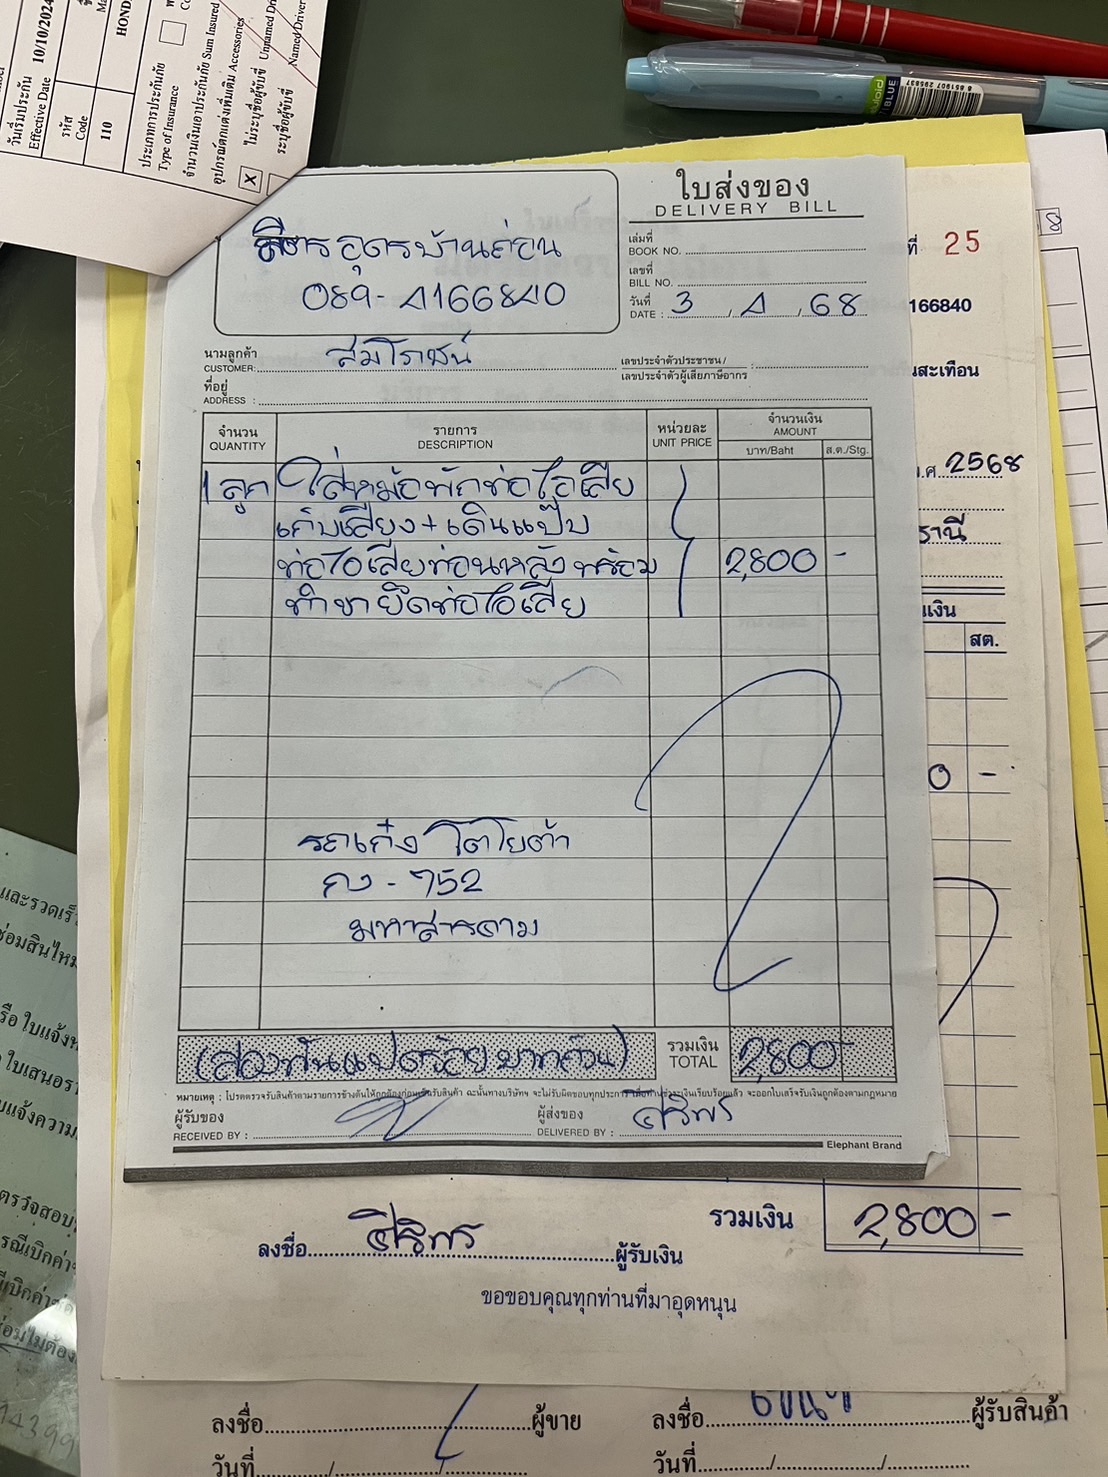 วันเริ่มประกัน
Effective Date 10/10/2024
รหัส
Code
110
HOND
ประเภทการประกันภัย
Type of Insurance
จำนวนเงินเอาประกันภัย Sum Insured
อุปกรณ์ตกแต่งเพิ่มเติม Accessories
X ไม่ระบุชื่อผู้ขับขี่ Unnamed Dri
ระบุชื่อผู้ขับขี่ Named Driver
BLUE
8 851907 295837
ใบส่งของ
DELIVERY BILL
อุดรบ้านถ่อน
089-4166840
เล่มที่
BOOK NO.
เลขที่
BILL NO.
วันที่
DATE : 3 / 4 / 68
นามลูกค้า
CUSTOMER: สมโภชน์
เลขประจำตัวประชาชน /
เลขประจำตัวผู้เสียภาษีอากร :
ที่อยู่
ADDRESS :
จำนวน
QUANTITY
รายการ
DESCRIPTION
หน่วยละ
UNIT PRICE
จำนวนเงิน
AMOUNT
บาท/Baht
ส.ต./Stg.
1 ลูก ใส่หม้อพักท่อไอเสีย
เก็บเสียง + เดินแป๊บ
ท่อไอเสียท่อนหลัง พร้อม 2,800 -
ทำขายึดท่อไอเสีย
รถเก๋ง โตโยต้า
กง - 752
มหาสารคาม
(สองพันแปดร้อยบาทถ้วน)
รวมเงิน
TOTAL 2,800 -
หมายเหตุ : โปรดตรวจรับสินค้าตามรายการข้างต้นให้ถูกต้องก่อนเซ็นรับสินค้า ฉะนั้นทางบริษัทฯ จะไม่รับผิดชอบทุกประการ
จะออกใบเสร็จรับเงินถูกต้องตามกฎหมาย
ผู้รับของ
RECEIVED BY :
ผู้ส่งของ
DELIVERED BY : ศิริพร
Elephant Brand
ที่ 25
166840
นสะเทือน
พ.ศ. 2568
รานี
เงิน
สต.
0 -
รวมเงิน 2,800 -
ลงชื่อ ศิริพร ผู้รับเงิน
ขอขอบคุณทุกท่านที่มาอุดหนุน
ลงชื่อ ผู้ขาย
ลงชื่อ ผู้รับสินค้า
วันที่ / /
วันที่ / /
และรวดเร็ว
ซ่อมสินไหม
รือ ใบแจ้งห
ใบเสนอรา
บแจ้งความ
ตรวจสอบ
รณีเบิกค่า